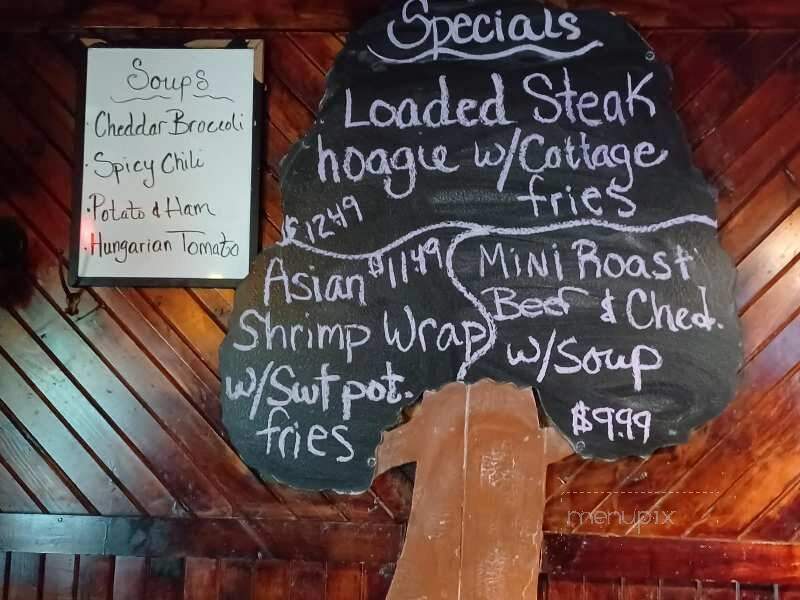 Soups
· Cheddar Broccoli
· Spicy Chili
· Potato & Ham
· Hungarian Tomato
Specials
Loaded Steak
hoagie w/Cottage
fries
$12.49
Asian $11.49
Shrimp Wrap
w/Swt pot.
fries
Mini Roast
Beef & Ched.
w/Soup
$9.99
menupix